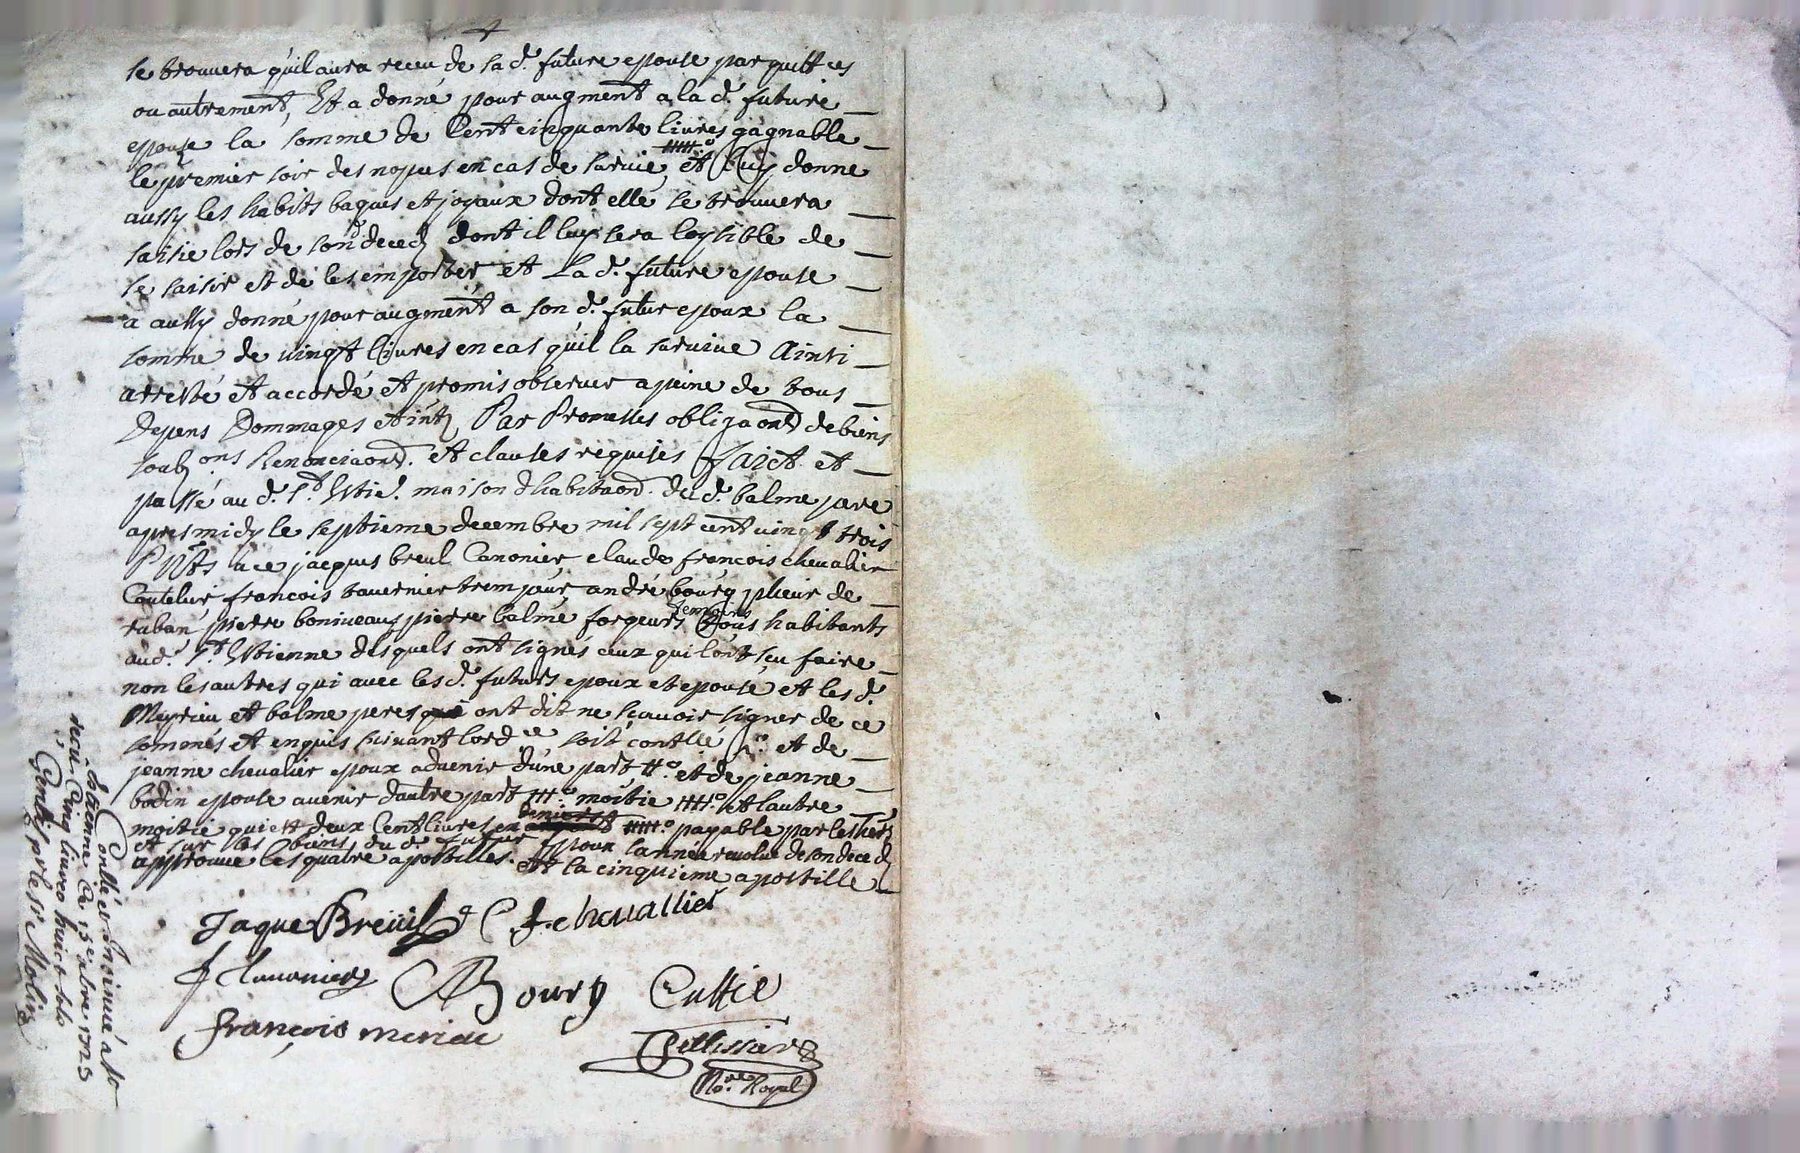 se trouvera qu'il aura receu de sa d.e future epouse par quittces
ou autrement, Et a donné pour augment a la d.e future
epouse la somme de Cent cinquante livres gagnable
le premier soir des nopces en cas de survie, et luy donne
aussy les habits bagues et joyaux dont elle se trouvera
saisie lors de son d. deced dont il luy sera loysible de
se saisir et de les emporter et La d.e future epouse
a aussy donné pour augment a son d. futur epoux la
somme de vingt livres en cas qu'il la survive Ainsi
arresté et accordé et promis observer a peine de tous
Depens Dommages et intz Par Promesses obligaons de biens
soubz ons Renonciaons. et clauses requises faict et
passé au d. St Etie. maison d'habitaon. du d. balme pere
apres midy le septieme decembre mil sept cent vingt trois
Pnts jacques breul Canonier, claude francois chevalier
Coutelier francois tavernier trempeur, andré bourg plieur de
ruban pierre boniveau pierre balme forgeurs temoins tous habitants
aud. St Etienne desquels ont signés ceux qui l'ont sçu faire
non les autres qui avec les d. futurs epoux et epouse et les d.
Meyrieu et balme peres ont dit ne sçavoir signer de ce
sommés et enquis suivant lord ce soit contllé #o et de
jeanne chevalier epoux advenir d'une part #o et de jeanne
bodin epouse avenir d'autre part #o moitié #o et l'autre
moitié qui est deux Cent livres en deniers #o payable par les hers
et sur les biens du d. futur epoux l'année revolue de son deced
approuve les quatre apostilles. et la cinquieme apostille
Jaque Breüil C. f. chevallier
f tavernier A Bourg Cussie
françois meriac
Pellissier
No.re Royal
Contllé et Insinué a St
Estienne Ce 15e xbre 1723
receu Cinq livres huict sols
Contis pr le sr Molin